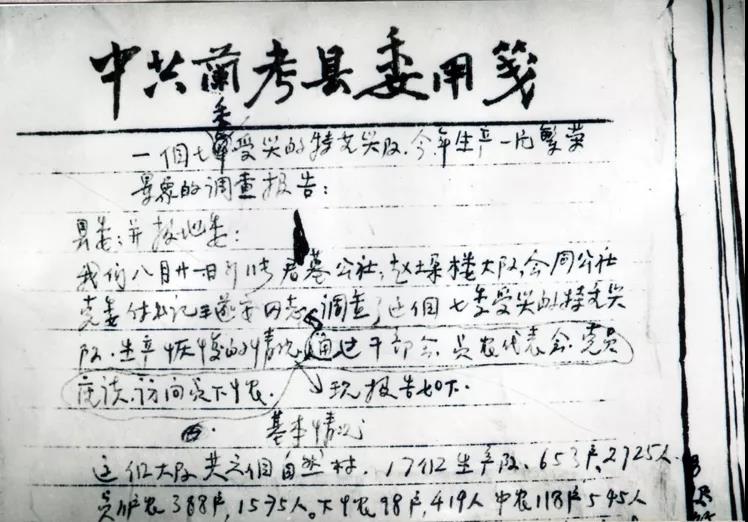 中共蘭考县委用笺
一个七季受灾的特重灾队.今年生产一片繁荣
景象的调查报告：
县委；并报地委：
我们八月廿一日到 君墓公社,赵垛楼大队,会同公社
党委付书记王 同志,调查了这个七季受灾的特重灾
队.生产恢复的情况.通过干部会.贫农代表会.党员
座谈.访问贫下中农. 现报告如下.
基本情况
这个大队共六个自然村.17个生产队.653户,2725人
贫 农388户,1595人。下中农98户,419人 中农118户545人